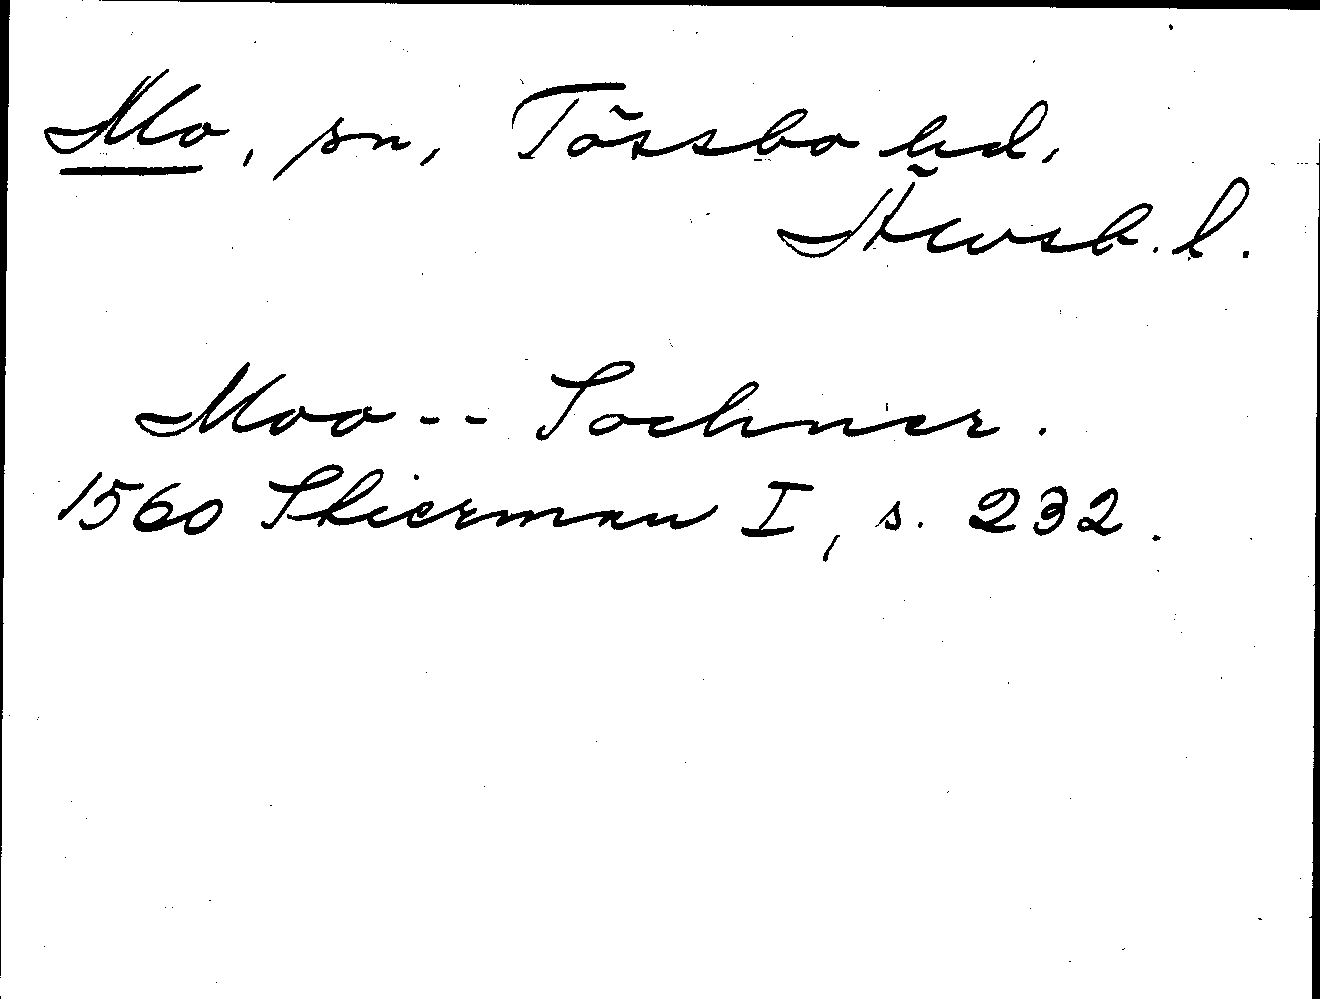 Mo, sn, Tössbo hd,
Älvsb. l.
Moo -- Sochner.
1560 Stierman I, s. 232.